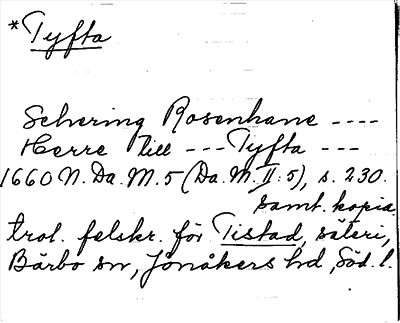 *Tyfta
Schering Rosenhane ----
Herre till --- Tyfta ---
1660 N. Da. M. 5 (Da. M. II:5), s. 230.
samt. kopia.
trol. felskr. för Tistad, säteri,
Bärbo sn, Jönåkers hd, Söd. l.